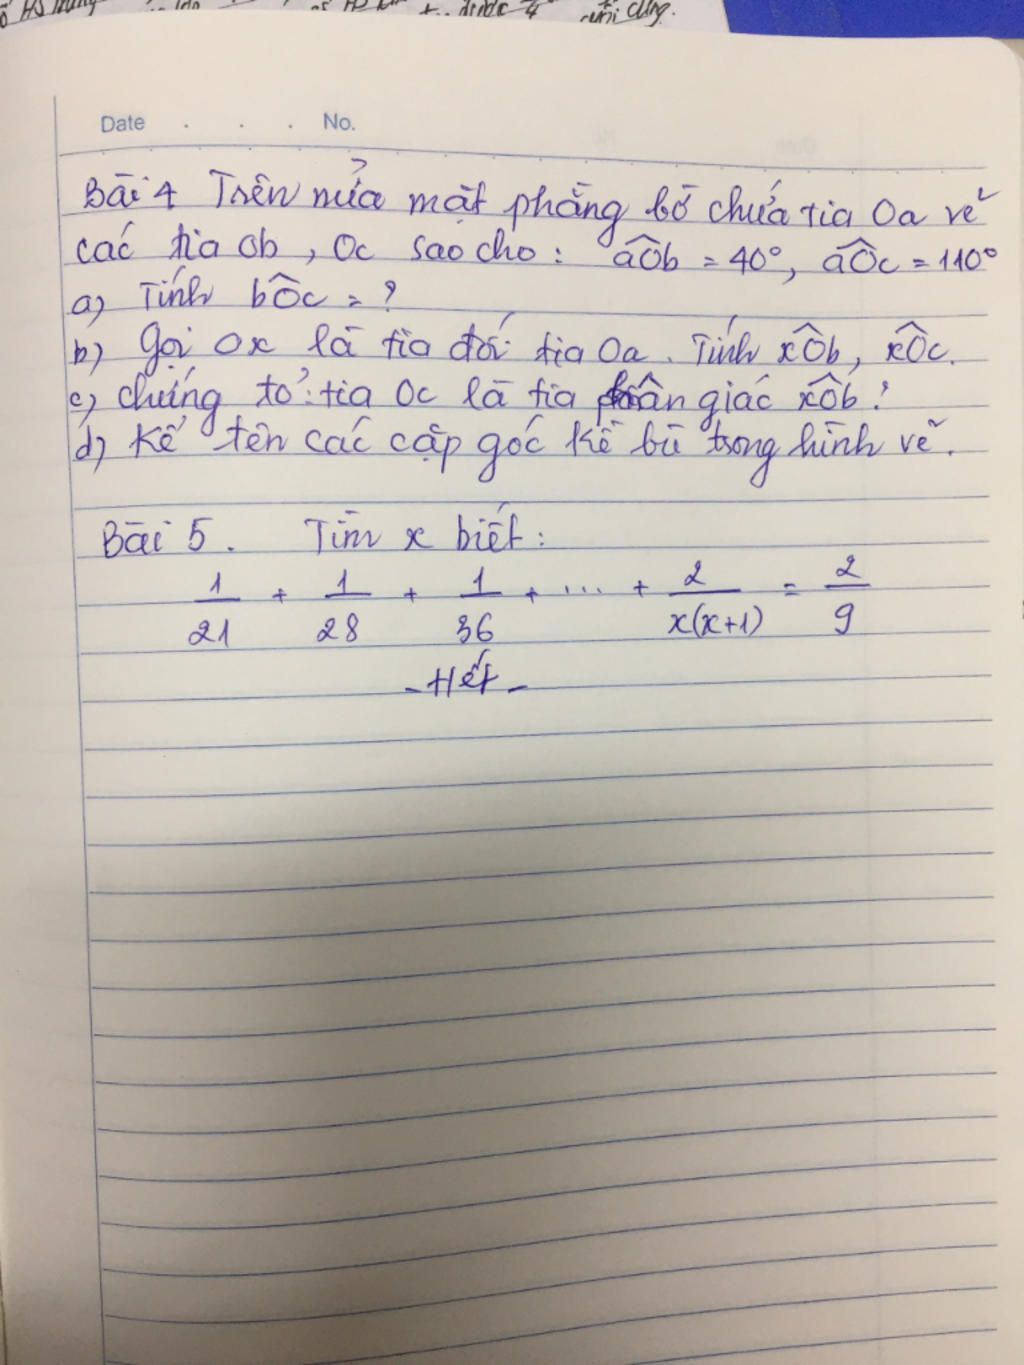 HS
cuối cùng.
Date . . . No.
Bài 4 Trên nửa mặt phẳng bờ chứa tia Oa vẽ
các tia Ob, Oc sao cho: aÔb = 40°, aÔc = 110°
a) Tính bÔc = ?
b) Gọi Ox là tia đối tia Oa. Tính xÔb, xÔc.
c) Chứng tỏ: tia Oc là tia phân giác xÔb?
d) Kể tên các cặp góc kề bù trong hình vẽ.
Bài 5. Tìm x biết:
1/21 + 1/28 + 1/36 + ... + 2/x(x+1) = 2/9
- Hết -